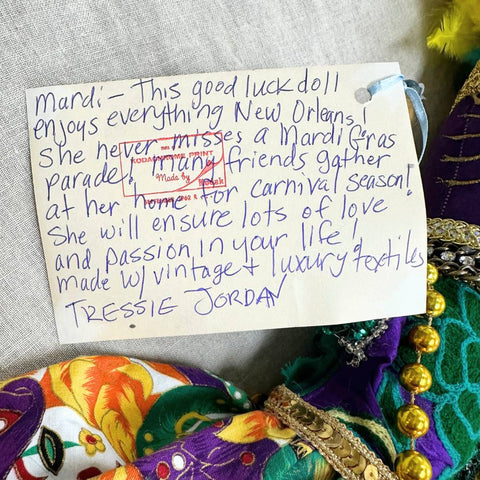 Mardi – This good luck doll
enjoys everything New Orleans!
She never misses a Mardi Gras
parade! Many friends gather
at her home for carnival season!
She will ensure lots of love
and passion in your life!
made w/ vintage + luxury textiles
TRESSIE JORDAN
KODACHROME PRINT
Made by
Kodak